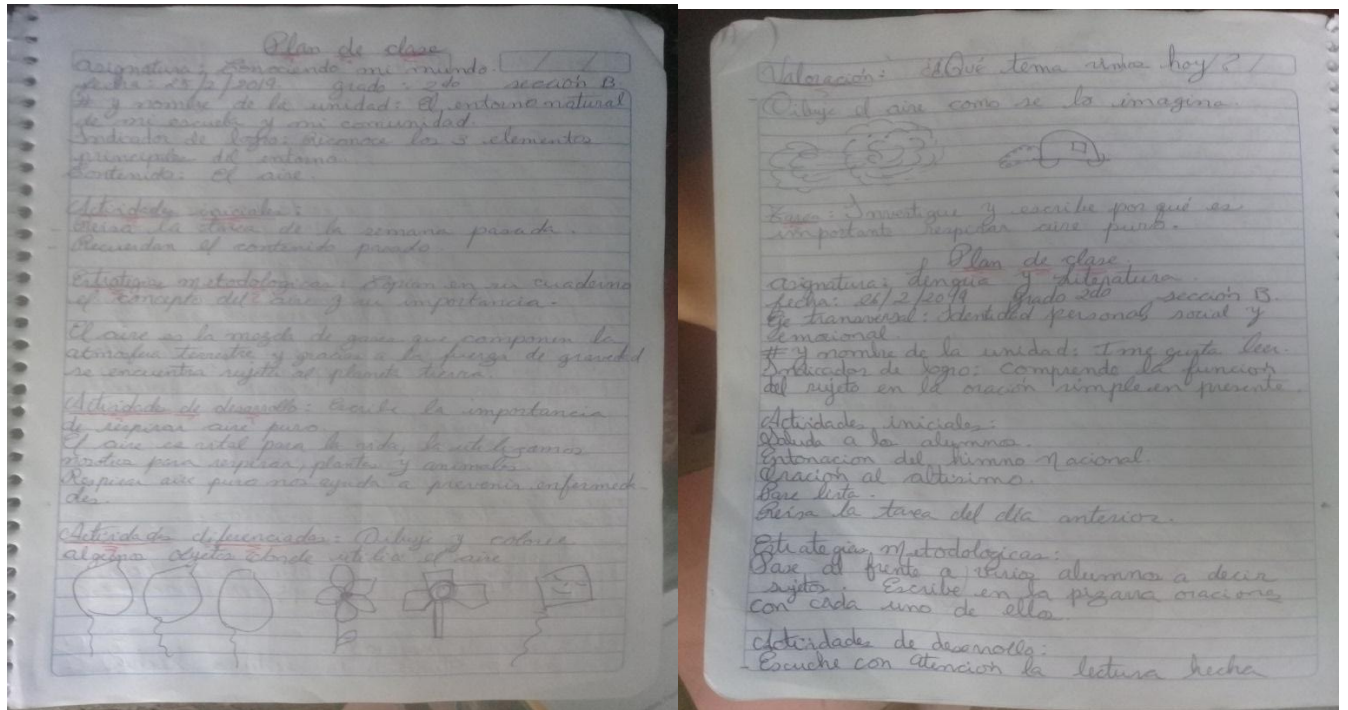 Plan de clase
Asignatura: Conociendo mi mundo.
fecha: 25/2/2019 grado: 2do sección B
# y nombre de la unidad: El entorno natural
de mi escuela y mi comunidad.
Indicador de logro: reconoce los 3 elementos
principales del entorno.
Contenido: El aire.
Actividades iniciales:
Revisa la tarea de la semana pasada.
Recuerdan el contenido pasado.
Estrategias metodologicas: Copian en su cuaderno
el concepto del aire y su importancia.
El aire es la mezcla de gases que componen la
atmosfera terrestre y gracias a la fuerza de gravedad
se encuentra sujeto al planeta tierra.
Actividades de desarrollo: Escribe la importancia
de respirar aire puro.
El aire es vital para la vida, lo utilizamos
para respirar, plantas y animales.
Respirar aire puro nos ayuda a prevenir enfermeda
des.
Actividades diferenciadas: Dibuje y coloree
algunos objetos donde utilice el aire
Valoración: ¿Qué tema vimos hoy?
Dibuje el aire como se lo imagina.
Tarea: Investigue y escribe por qué es
importante respirar aire puro.
Plan de clase
Asignatura: Lengua y Literatura
fecha: 26/2/2019 grado 2do sección B.
Eje transversal: Identidad personal, social y
emocional.
# y nombre de la unidad: I me gusta leer.
Indicador de logro: Comprendo la función
del sujeto en la oración simple en presente
Actividades iniciales:
Saluda a los alumnos.
Entonación del himno Nacional.
Oración al altisimo.
Pase lista.
Revisa la tarea del día anterior.
Estrategias metodologicas:
Pase al frente a varios alumnos a decir
sujetos. Escribe en la pizarra oraciones
con cada uno de ellos.
Actividades de desarrollo:
Escuche con atención la lectura hecha